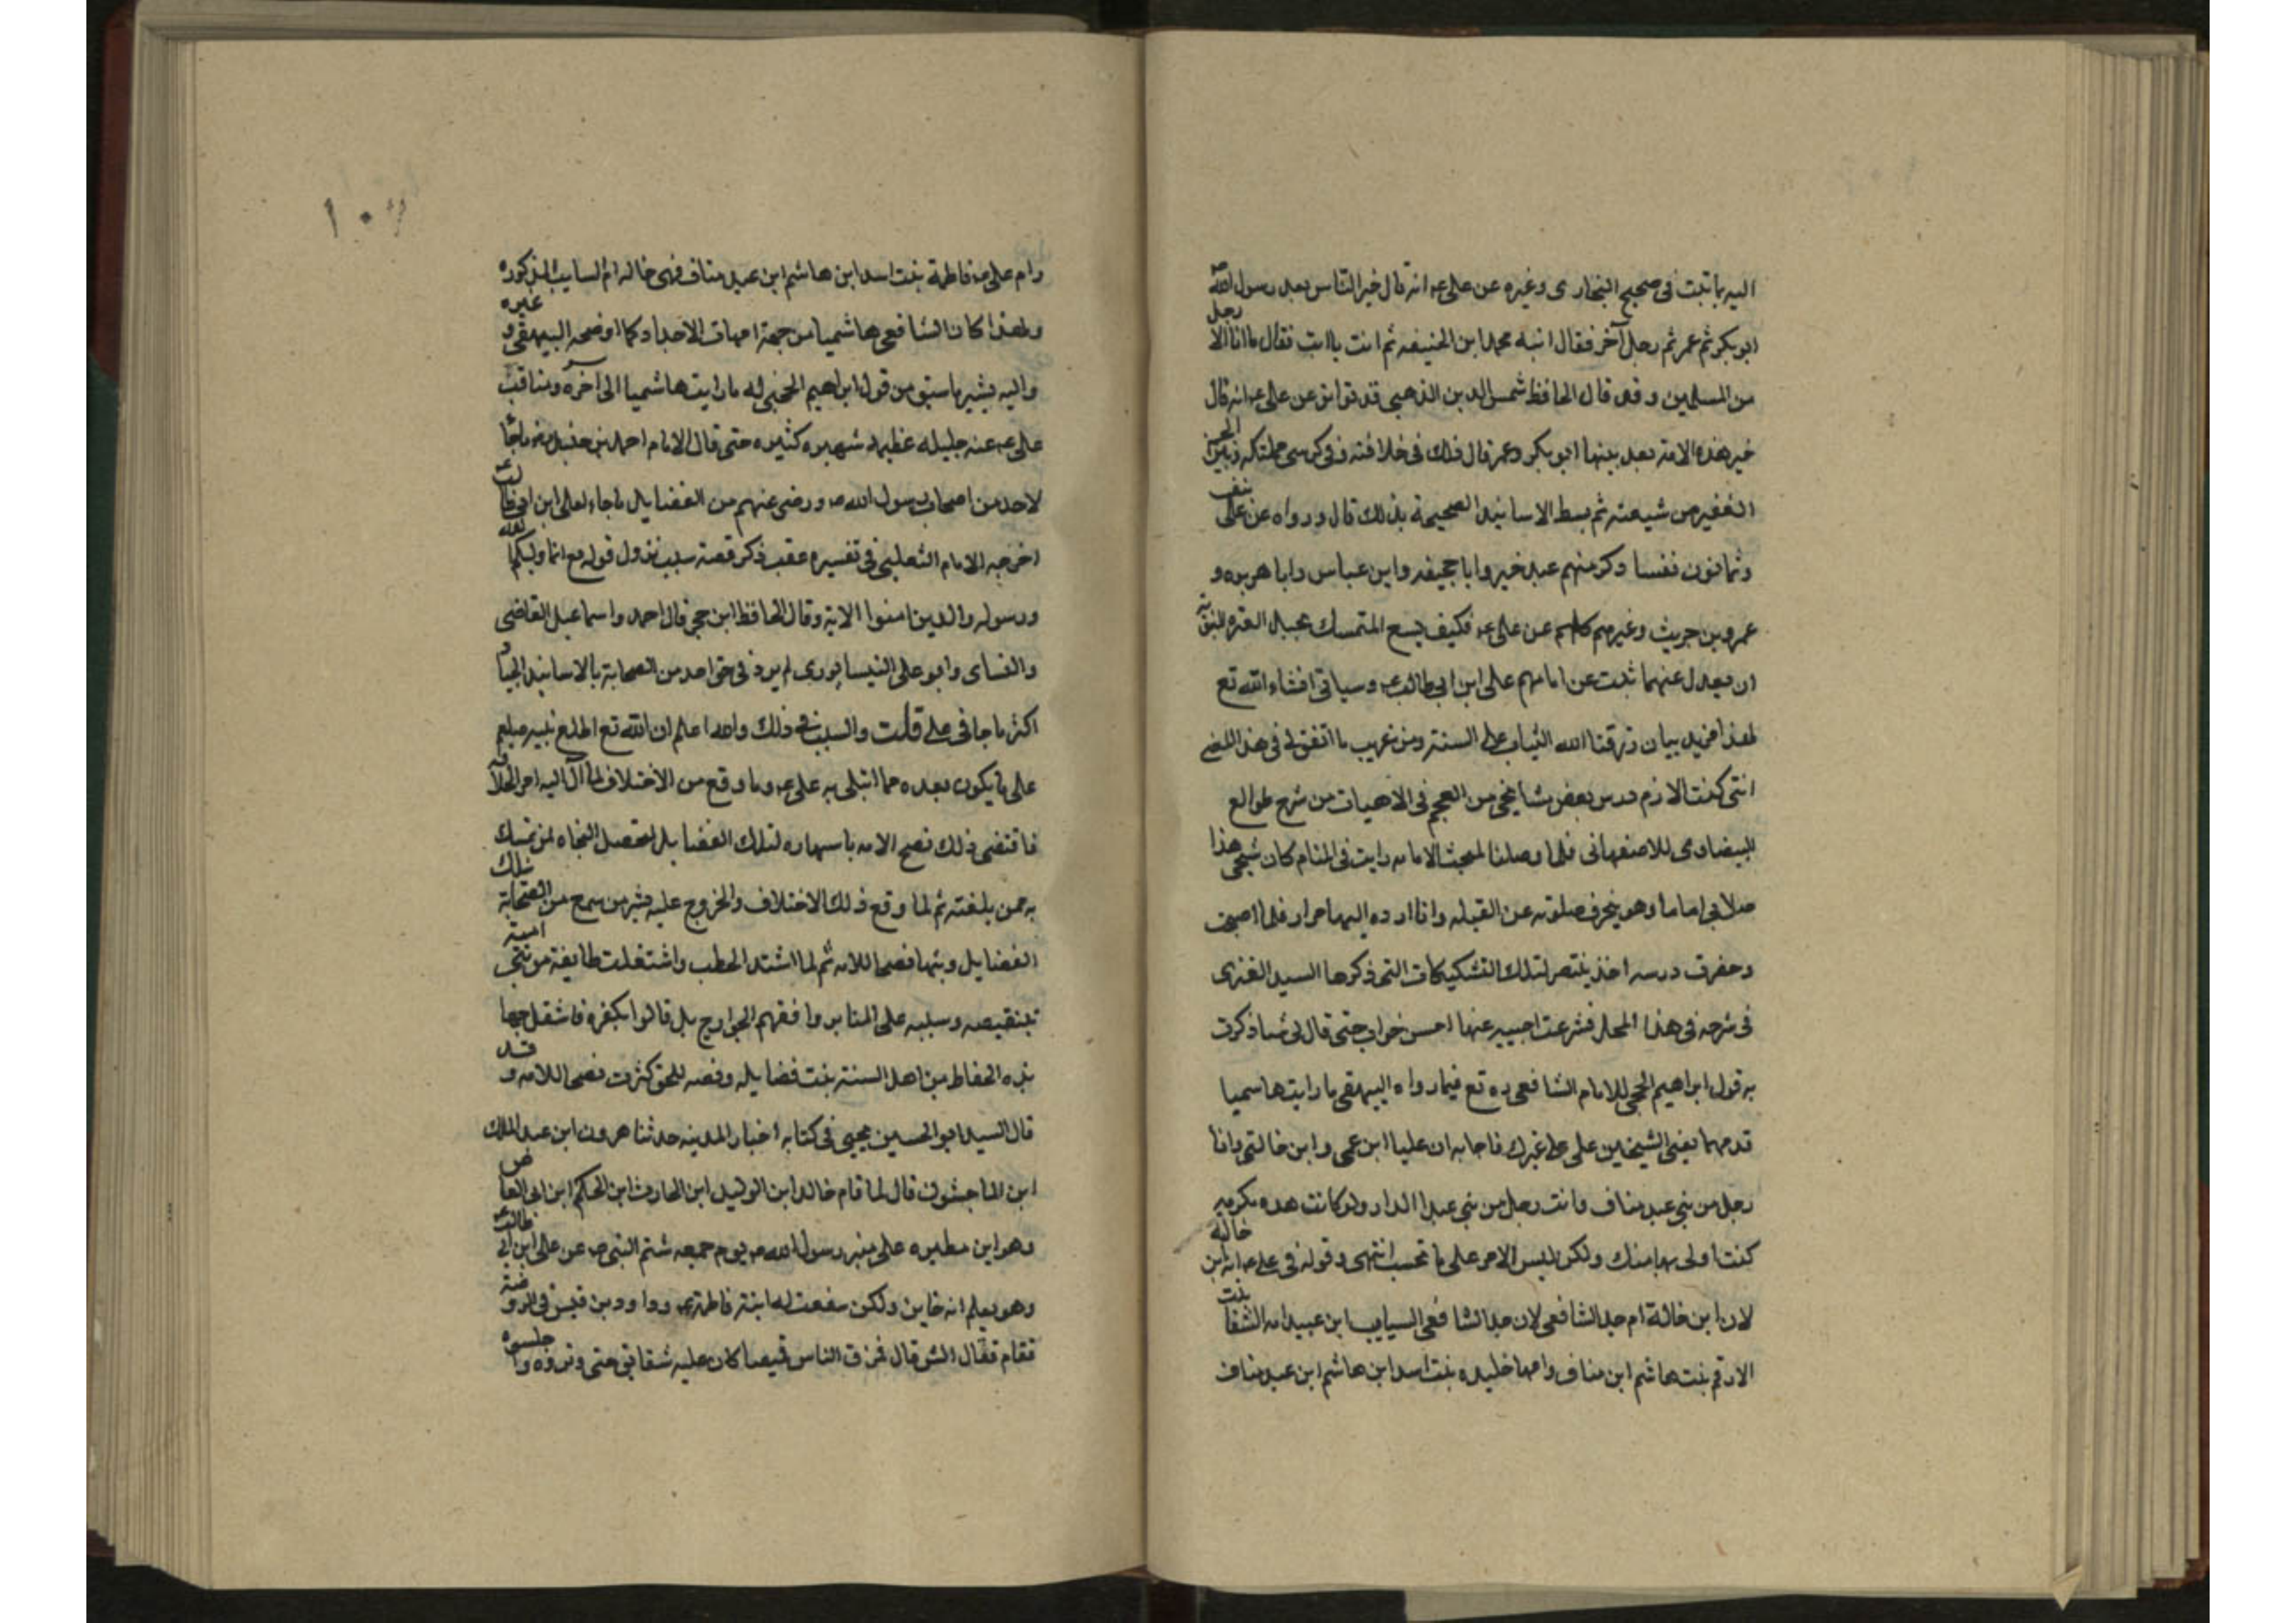 اليه بما ثبت فى صحيح البخارى وغيره عن على عه انه قال خير الناس بعد رسول الله ص
ابو بكر ثم عمر ثم رجل آخر فقال ابنه محمد ابن الحنيفه ثم انت يا ابت فقال ما انا الا رجل
من المسلمين وقد قال الحافظ شمس الدين الذهبى قد تواتر عن على عه انه قال
خير هذه الامة بعد نبيها ابو بكر وعمر قال ذلك فى خلافته وفى كرسى مملكته وبين الجم
الغفير من شيعته ثم بسط الاسانيد الصحيحة بذلك قال ورواه عن على نيف
وثمانون نفسا وذكر منهم عبد خير وابا جحيفه وابن عباس وابا هريره و
عمرو بن حريث وغيرهم كلهم عن على عه فكيف يسع المتمسك بحبل العترة النبوية
ان يعدل عنهما ثبت عن امامهم على ابن ابى طالب عه وسياتى انشاء الله تع
لهذا مزيد بيان رزقنا الله الثبات على السنة ومن غريب ما اتفق لى فى هذا المعنى
اننى كنت الازم درس بعض مشايخى من العجم فى الاهيات من شرح طوالع
البيضاوى للاصفهانى فلما وصلنا لمبحث الامامه رايت فى المنام كان شيخى هذا
صلا بى اماما وهو ينحرف صلوته عن القبله وانا ارده اليها مرارا فلما اصبحت
وحضرت درسه اخذ ينتصر لتلك التشكيكات التى ذكرها السيد العبرى
فى شرحه فى هذا المحل فشرعت اجيبه عنها احسن جواب حتى قال لى شيئا ذكرت
به قول ابراهيم الحجبى للامام الشافعى ره تع فيما رواه البيهقى ما رايت هاشميا
قدمهما يعنى الشيخين على على غيرك فاجابه ان عليا ابن عمى وابن خالتى وانا
رجل من بنى عبد مناف وانت رجل من بنى عبد الدار ولو كانت هذه مكرمه
كنت اولى بها منك ولكن ليس الامر على ما تحسب انتهى وقوله فى على عه انه ابن خالة
لان ابن خالة ام جد الشافعى لان جد الشافعى السايب ابن عبيد امه الشفا بنت
الارقم بنت هاشم ابن مناف وامها خليده بنت اسد ابن هاشم ابن عبد مناف
١٠٧
وام على عه فاطمة بنت اسد ابن هاشم ابن عبد مناف فهى خالة ام السايب المذكوره
ولهذا كان الشافعى هاشميا من جهة امهات الاجداد كما اوضحه البيهقى و غيره
واليه يشير ما سبق من قول ابراهيم الحجبى له ما رايت هاشميا الى آخره ومناقب
على عه عنه جليله عظيمه شهيره كثيره حتى قال الامام احمد بن حنبل رضه ما جا
لاحد من اصحاب رسول الله ص ورضى عنهم من الفضايل ما جاء لعلى ابن ابى طالب عه
اخرجه الامام الثعلبى فى تفسيره عقب ذكر قصة سبب نزول قوله تع انما وليكم الله
ورسوله والذين امنوا الاية وقال الحافظ ابن حجر قال احمد واسماعيل القاضى
والنساى وابو على النيسابورى لم يرد فى حق احد من الصحابة بالاسانيد الجياد
اكثر ما جا فى على قلت والسبب فى ذلك والله اعلم ان الله تع اطلع نبيه صلعم
على ما يكون بعده مما ابتلى به على عه وما وقع من الاختلاف لما آل اليه امر الخلافه
فاقتضى ذلك نصح الامه باسهاره لتلك الفضايل لتحصل النجاه لمن تمسك
به ممن بلغته ثم لما وقع ذلك الاختلاف والخروج عليه بشر من سمع من الصحابة تلك
الفضايل وبثها نصحا للامه ثم لما اشتد الخطب واشتغلت طايفة من بنى امية
بتنقيصه وسببه على المنابر وافقهم الخوارج بل قالوا بكفره فاشتغل جها
بذه الحفاظ من اهل السنة بثبت فضايله ونصه للحق كثرت نصحا للامه و قد
قال السيد ابو الحسين يحيى فى كتابه اخبار المدينه حدثنا هرون ابن عبد الملك
ابن الماجشون قال لما قام خالد ابن الوليد ابن الحارث ابن الحكم ابن ابى العاص
وهو ابن مطيره على منبر رسول الله ص يوم جمعه شتم النبى ص عن على ابن ابى طالب عه
وهو يعلم انه خاين ولكن شفعت له ابنته فاطمة وداود بن قيس فى الروضة
فقام فقال الش قال فمزق الناس قميصا كان عليه شقايق حتى وتروه و اجلسوه